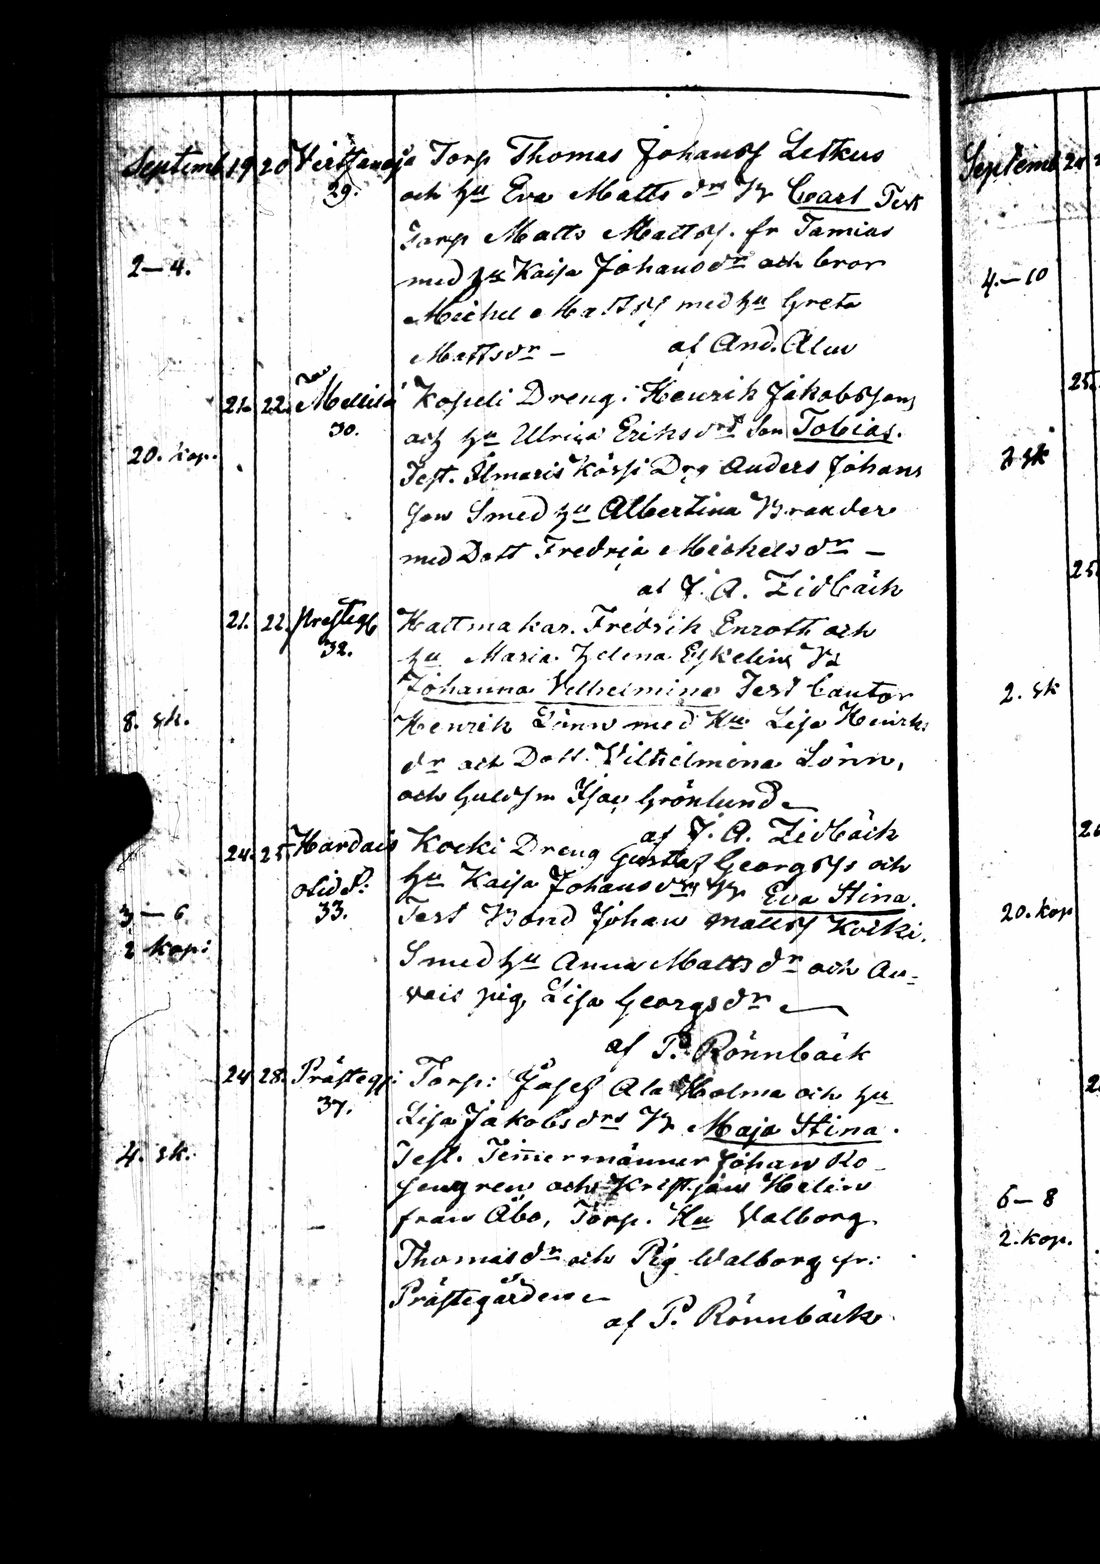 Septemb 19 20 Torp Thomas Johans Leskus
29. och hu Eva Matts drs Br Carl Test
Torp Matts Matts. fr Tamias
2–4. med hu Kaisa Johans dr och bror
Michel Matts med hu Greta
Mattsdr – af And. Alm
21. 22. Mellilä Kopeli Dreng. Henrik Jakobsson
30. och hu Ulrica Eriksdrs son Tobias.
20. kop. Test. Ilmaris Kössi Drg Anders Johans
son Smed hu Albertina Brander
med Dott Fredrica Michelsdr –
af J. A. Zidbäck
21. 22. Prestegb Hattmakar. Fredrik Enroth och
32. hu Maria Helena Eskelin Br
Johanna Vilhelmina Test Cantor
8. sk. Henrik Lönn med Hu Lisa Henriks
dr och Dott. Vilhelmina Lönn,
och Guldsm Isac Grönlund
af J. A. Zidbäck
24. 25. Koski Dreng Gustaf Georgs och
hu Kaisa Johansdrs Br Eva Stina.
33. Test Bond Johan Matts Koiki.
3–6.
2 kop: Smed hu Anna Mattsdr och Au-
vais pig, Lisa Georgsdr
af P. Rönnbäck
24 28. Prästegr: Torp: Josef Ala Holma och hu
37. Lisa Jakobsdrs Br Maja Stina.
4. sk. Test. Temmermänner Johan Ro-
sengren och Kristjan Helin
från Åbo, Torp. Hu Valborg
Thomasdr och Pig Walborg fr:
Prästegården
af P. Rönnbäck
Septemb 24
4.–10
25.
2 sk
25
2. sk
26
20. kop
6–8
2. kop.